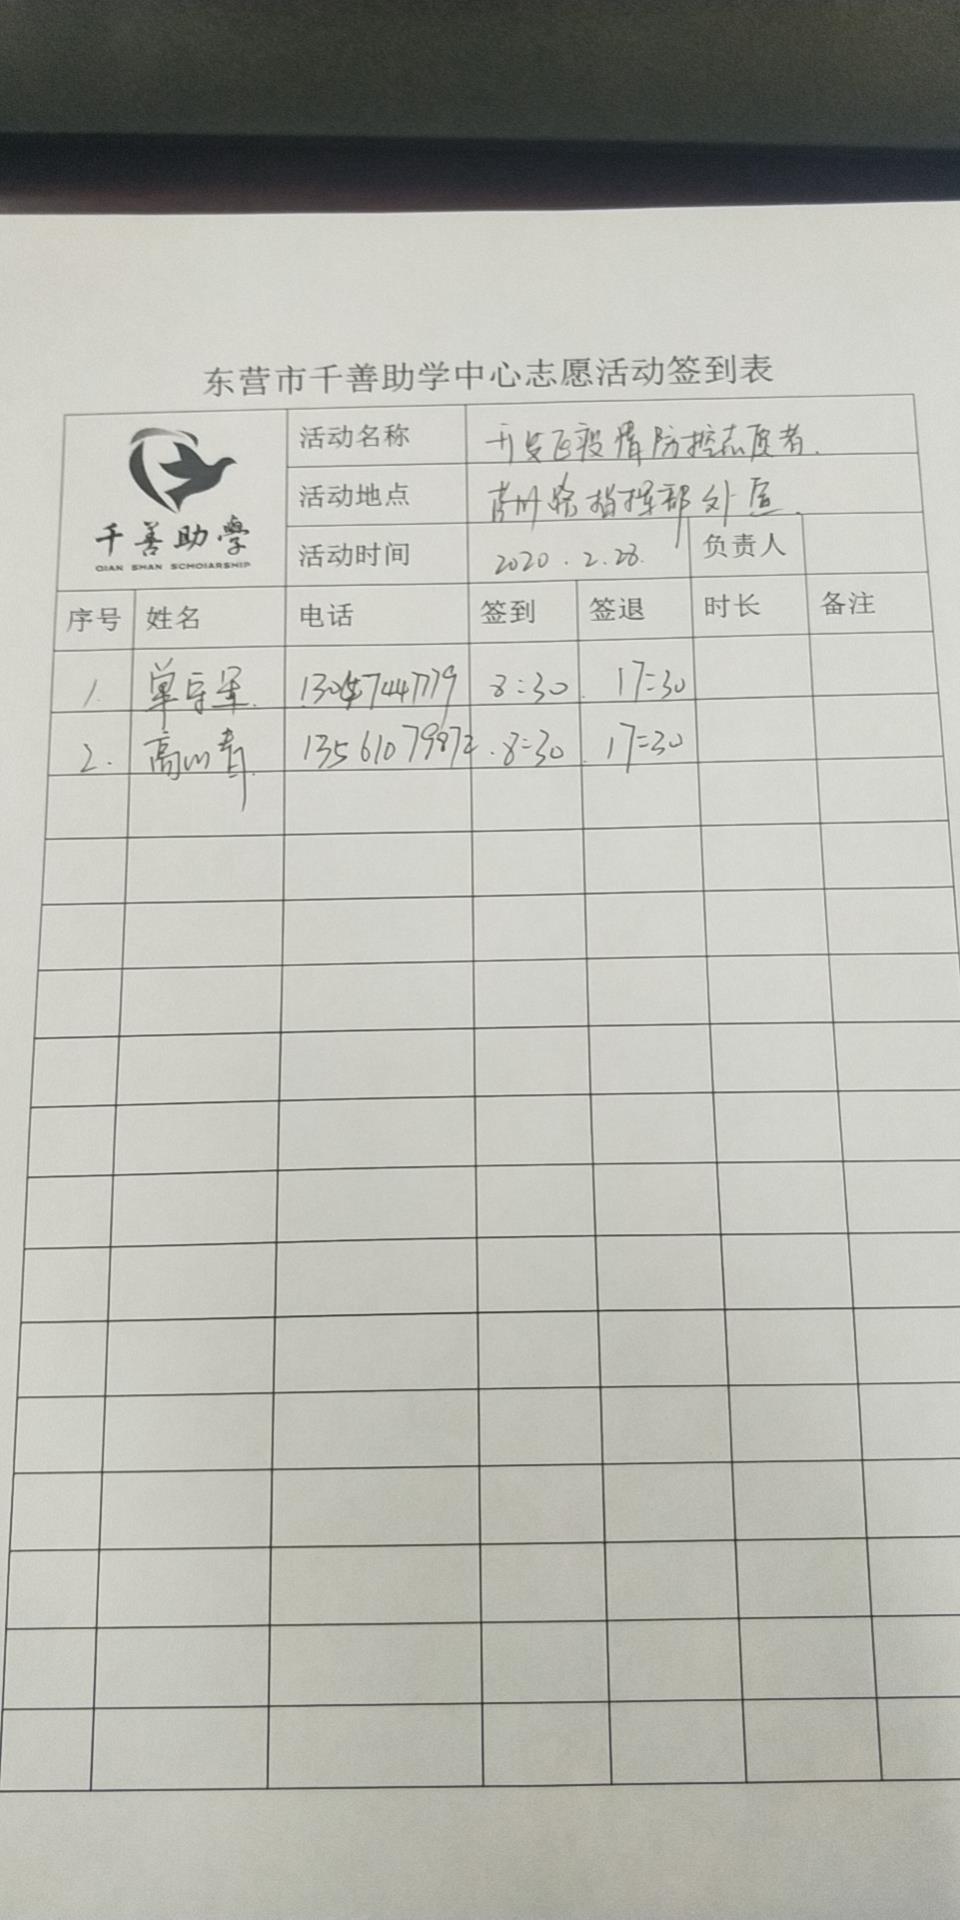 东营市千善助学中心志愿活动签到表
千善助學
QIAN SHAN SCHOIARSHIP
活动名称 开发区疫情防控志愿者.
活动地点 指挥部
活动时间 2020.2.28. 负责人
序号 姓名 电话 签到 签退 时长 备注
1. 单守军. 8:30 17:30
2. 高 青. 8:30 17:30